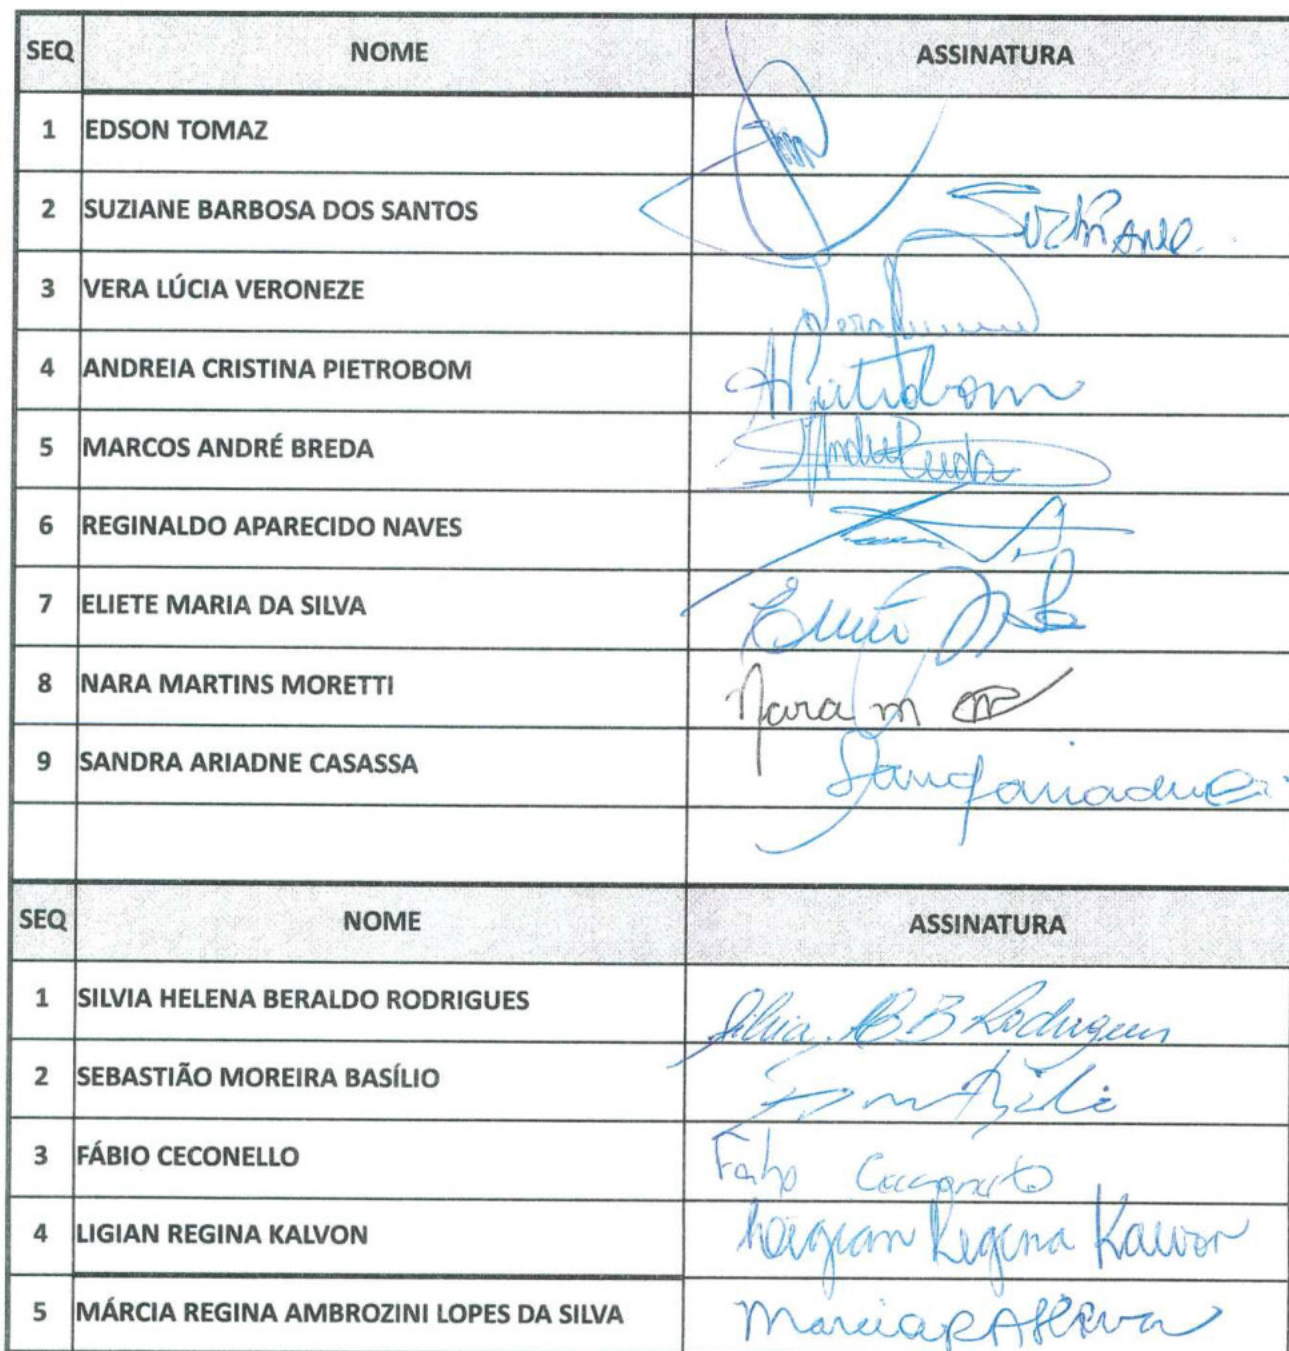 SEQ NOME ASSINATURA
1 EDSON TOMAZ
2 SUZIANE BARBOSA DOS SANTOS Suziane
3 VERA LÚCIA VERONEZE Vera
4 ANDREIA CRISTINA PIETROBOM APietrobom
5 MARCOS ANDRÉ BREDA
6 REGINALDO APARECIDO NAVES
7 ELIETE MARIA DA SILVA
8 NARA MARTINS MORETTI Nara m
9 SANDRA ARIADNE CASASSA
SEQ NOME ASSINATURA
1 SILVIA HELENA BERALDO RODRIGUES Silvia B Rodrigues
2 SEBASTIÃO MOREIRA BASÍLIO
3 FÁBIO CECONELLO Fabio
4 LIGIAN REGINA KALVON Ligian Regina Kalvon
5 MÁRCIA REGINA AMBROZINI LOPES DA SILVA MarciaRASilva